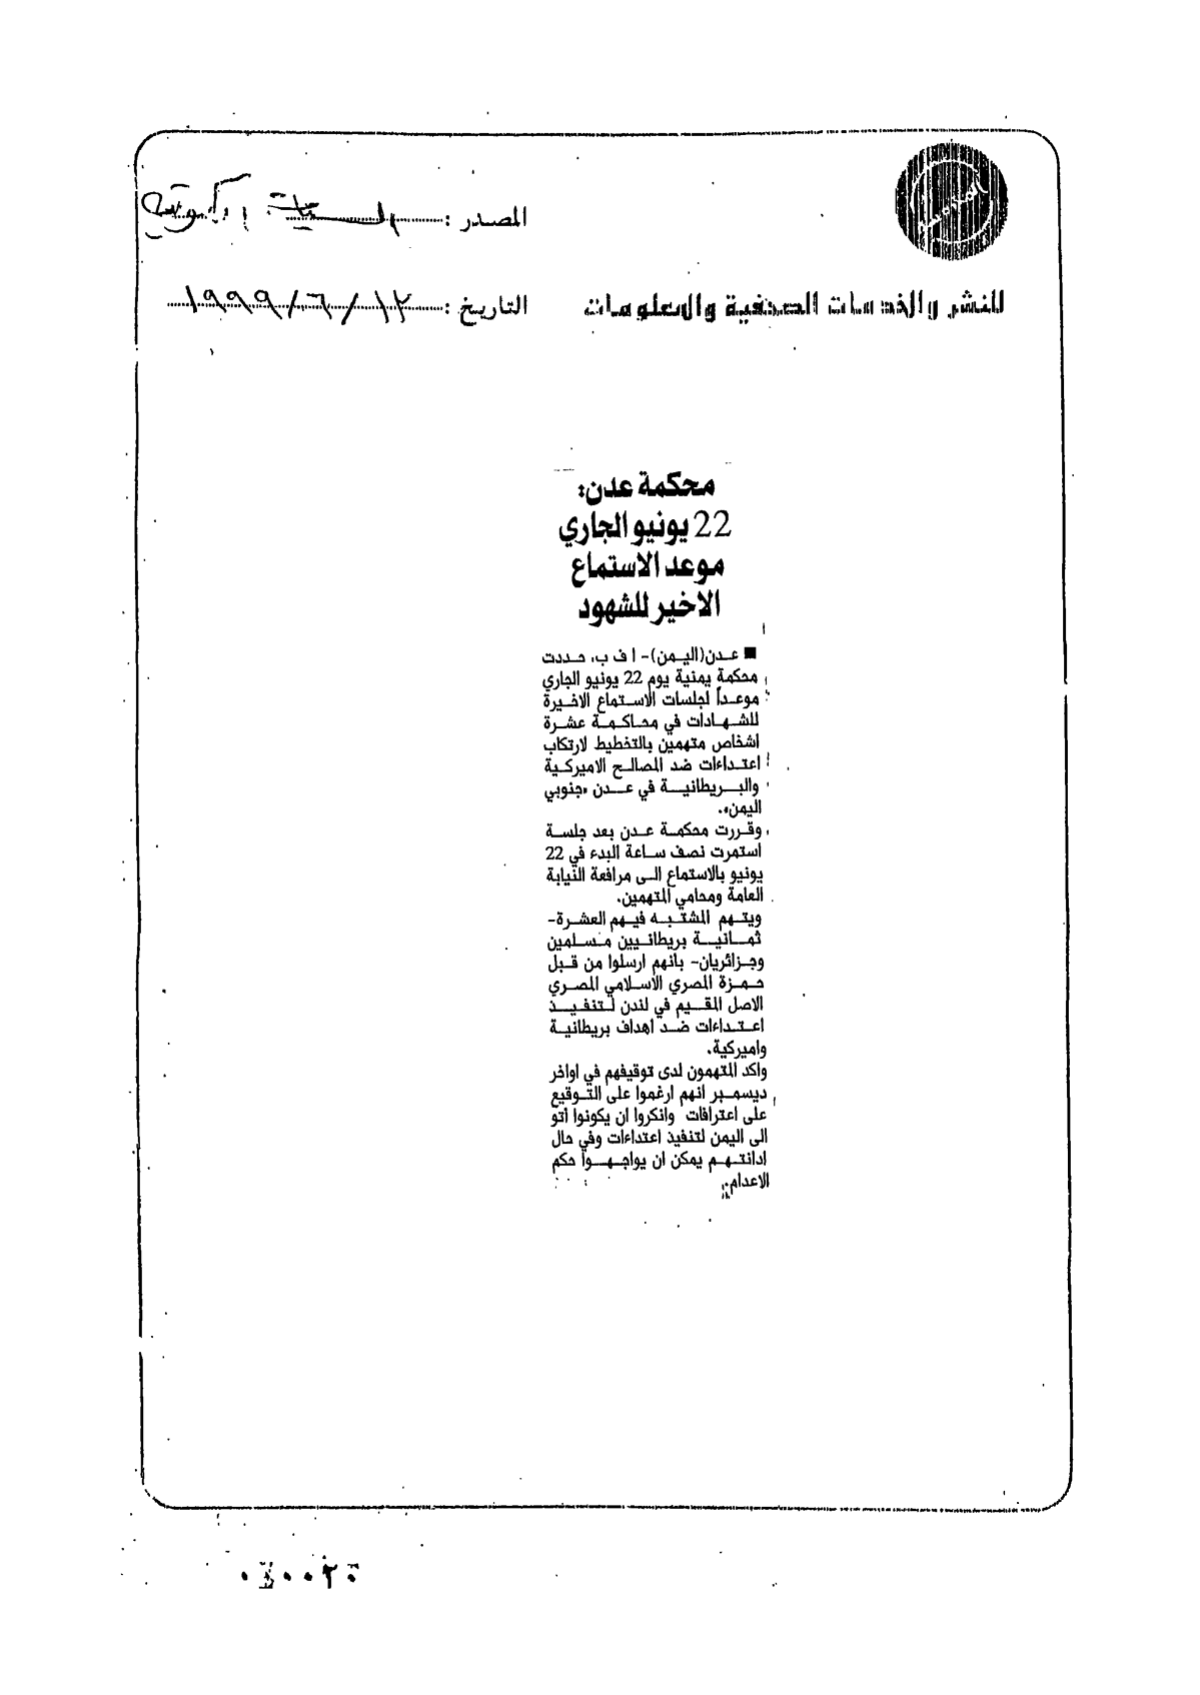 المصدر : السياسة الكويتية
للنشر والخدمات الصحفية والمعلومات
التاريخ : ١٢ / ٦ / ١٩٩٩
محكمة عدن:
22 يونيو الجاري
موعد الاستماع
الاخير للشهود
■ عدن(اليمن)- ا ف ب، حددت
محكمة يمنية يوم 22 يونيو الجاري
موعداً لجلسات الاستماع الاخيرة
للشهادات في محاكمة عشرة
اشخاص متهمين بالتخطيط لارتكاب
اعتداءات ضد المصالح الاميركية
والبريطانية في عدن «جنوبي
اليمن».
وقررت محكمة عدن بعد جلسة
استمرت نصف ساعة البدء في 22
يونيو بالاستماع الى مرافعة النيابة
العامة ومحامي المتهمين.
ويتهم المشتبه فيهم العشرة-
ثمانية بريطانيين مسلمين
وجزائريان- بانهم ارسلوا من قبل
حمزة المصري الاسلامي المصري
الاصل المقيم في لندن لتنفيذ
اعتداءات ضد اهداف بريطانية
واميركية.
واكد المتهمون لدى توقيفهم في اواخر
ديسمبر انهم ارغموا على التوقيع
على اعترافات وانكروا ان يكونوا اتو
الى اليمن لتنفيذ اعتداءات وفي حال
ادانتهم يمكن ان يواجهوا حكم
الاعدام.